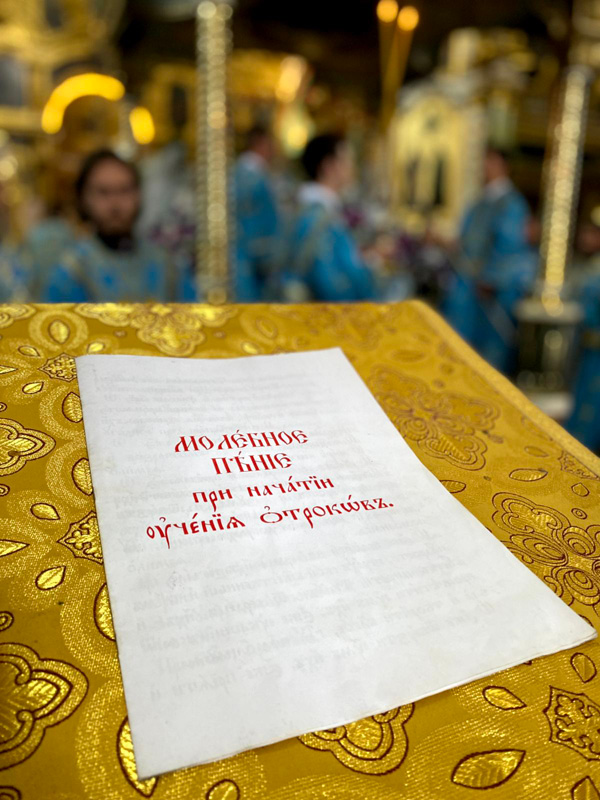 МОЛЕ́БНОЕ
ПѢ́НІЕ
при нача́тїи
ᲂу҆че́нїѧ ѻ҆трокѡ́въ.